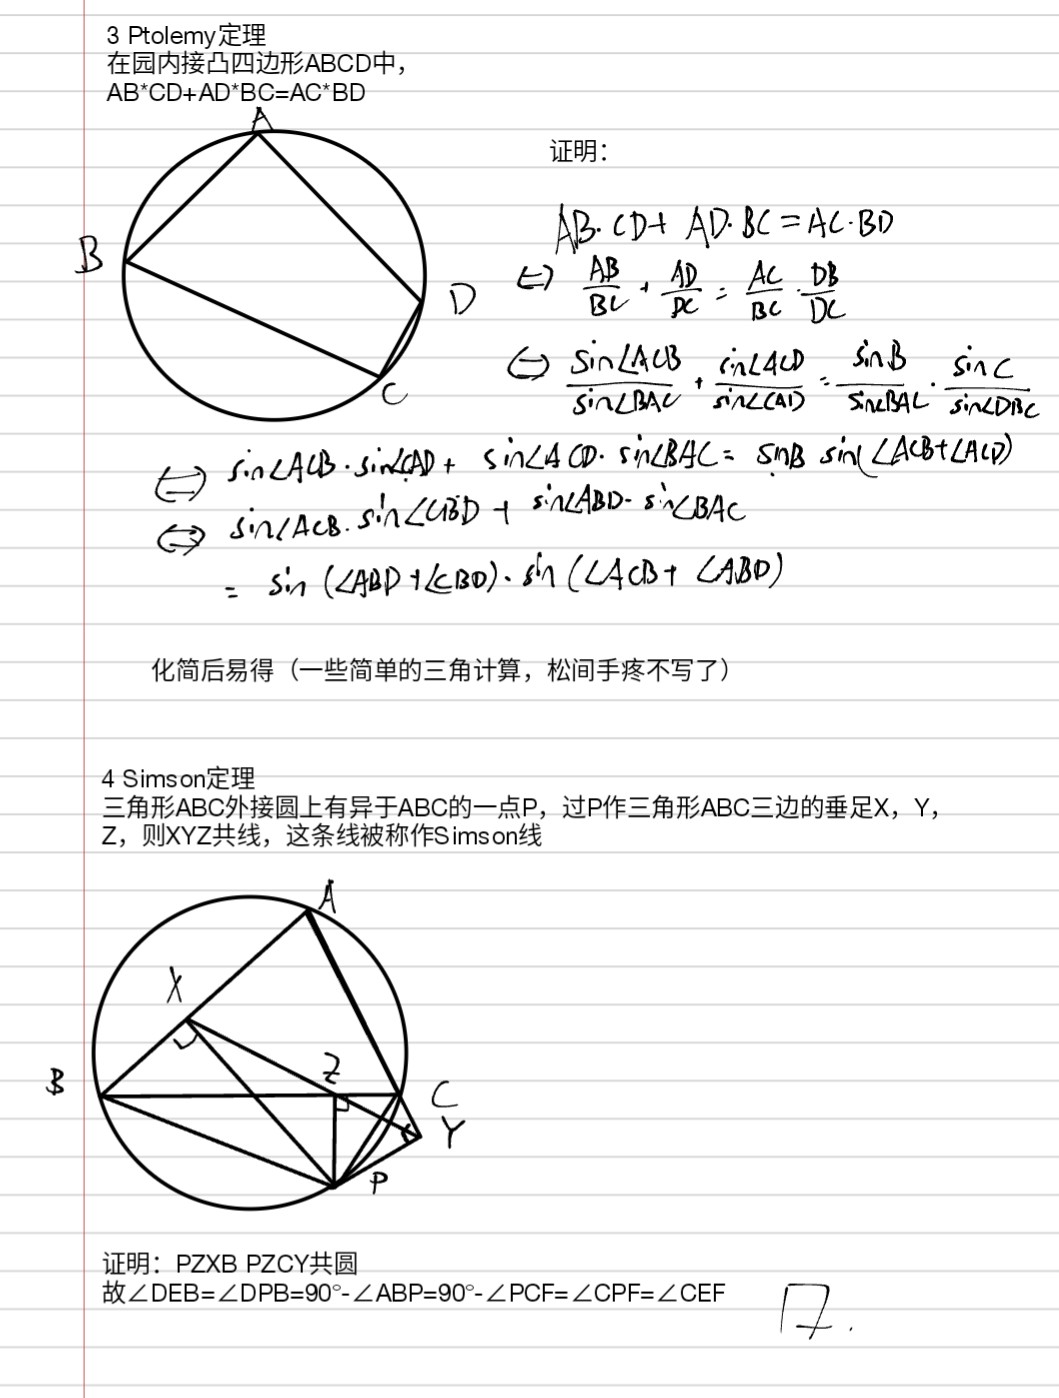 3 Ptolemy定理
在园内接凸四边形ABCD中，
AB*CD+AD*BC=AC*BD
A
B
D
C
证明：
AB·CD+AD·BC=AC·BD
⇔ AB/BC + AD/DC = AC/BC · DB/DC
⇔ sin∠ACB/sin∠BAC + sin∠ACD/sin∠CAD = sinB/sin∠BAC · sinC/sin∠DBC
⇔ sin∠ACB·sin∠CAD + sin∠ACD·sin∠BAC = sinB sin(∠ACB+∠ACD)
⇔ sin∠ACB·sin∠CBD + sin∠ABD·sin∠BAC
= sin(∠ABD+∠CBD)·sin(∠ACB+∠ABD)
化简后易得（一些简单的三角计算，松间手疼不写了）
4 Simson定理
三角形ABC外接圆上有异于ABC的一点P，过P作三角形ABC三边的垂足X，Y，
Z，则XYZ共线，这条线被称作Simson线
A
X
B
Z
C
Y
P
证明：PZXB PZCY共圆
故∠DEB=∠DPB=90°-∠ABP=90°-∠PCF=∠CPF=∠CEF